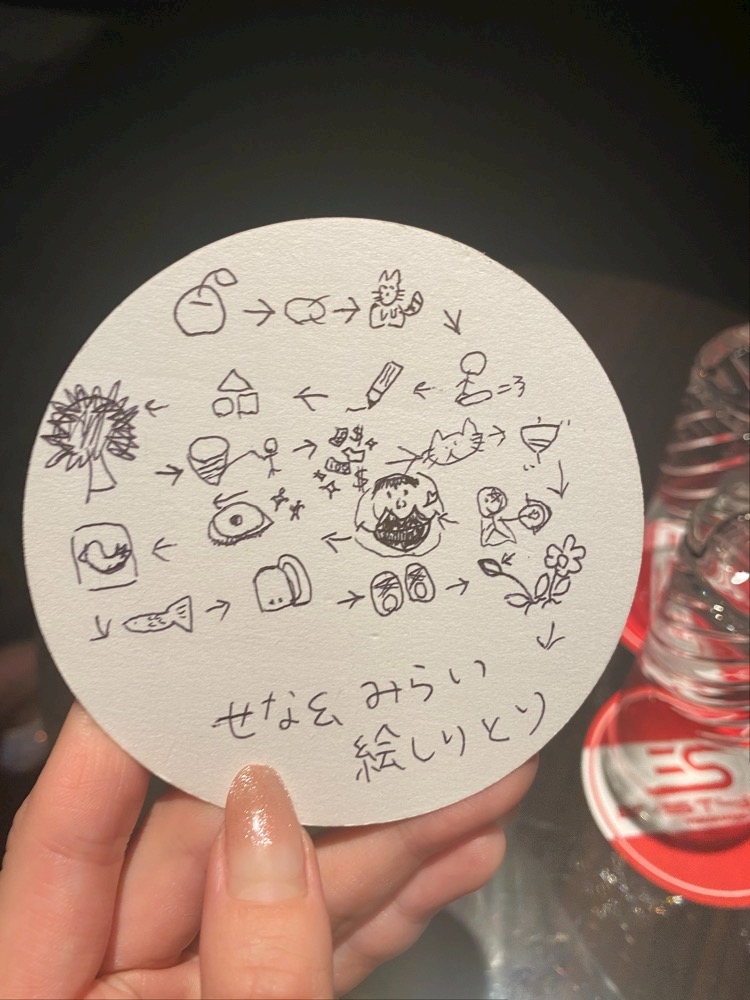 せなと みらい
絵しりとり
ES